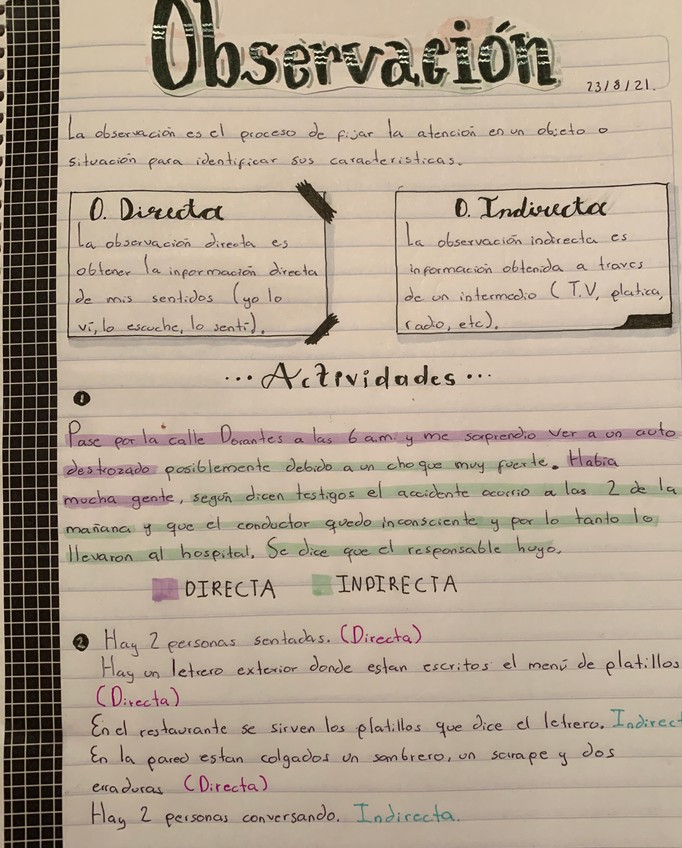 Observación
23/8/21.
La observación es el proceso de fijar la atención en un objeto o
situación para identificar sus caracteristicas.
O. Directa
La observación directa es
obtener la información directa
de mis sentidos (yo lo
vi, lo escuche, lo senti).
O. Indirecta
La observación indirecta es
información obtenida a traves
de un intermedio (T.V, platica,
radio, etc).
... Actividades ...
1
Pase por la calle Dorantes a las 6 a.m. y me sorprendio ver a un auto
destrozado posiblemente debido a un choque muy fuerte. Habia
mucha gente, según dicen testigos el accidente ocurrio a las 2 de la
mañana y que el conductor quedo inconsciente y por lo tanto lo
llevaron al hospital. Se dice que el responsable huyo.
DIRECTA INDIRECTA
2 Hay 2 personas sentadas. (Directa)
Hay un letrero exterior donde estan escritos el menú de platillos
(Directa)
En el restaurante se sirven los platillos que dice el letrero. Indirect
En la pared estan colgados un sombrero, un sarape y dos
erraduras (Directa)
Hay 2 personas conversando. Indirecta.